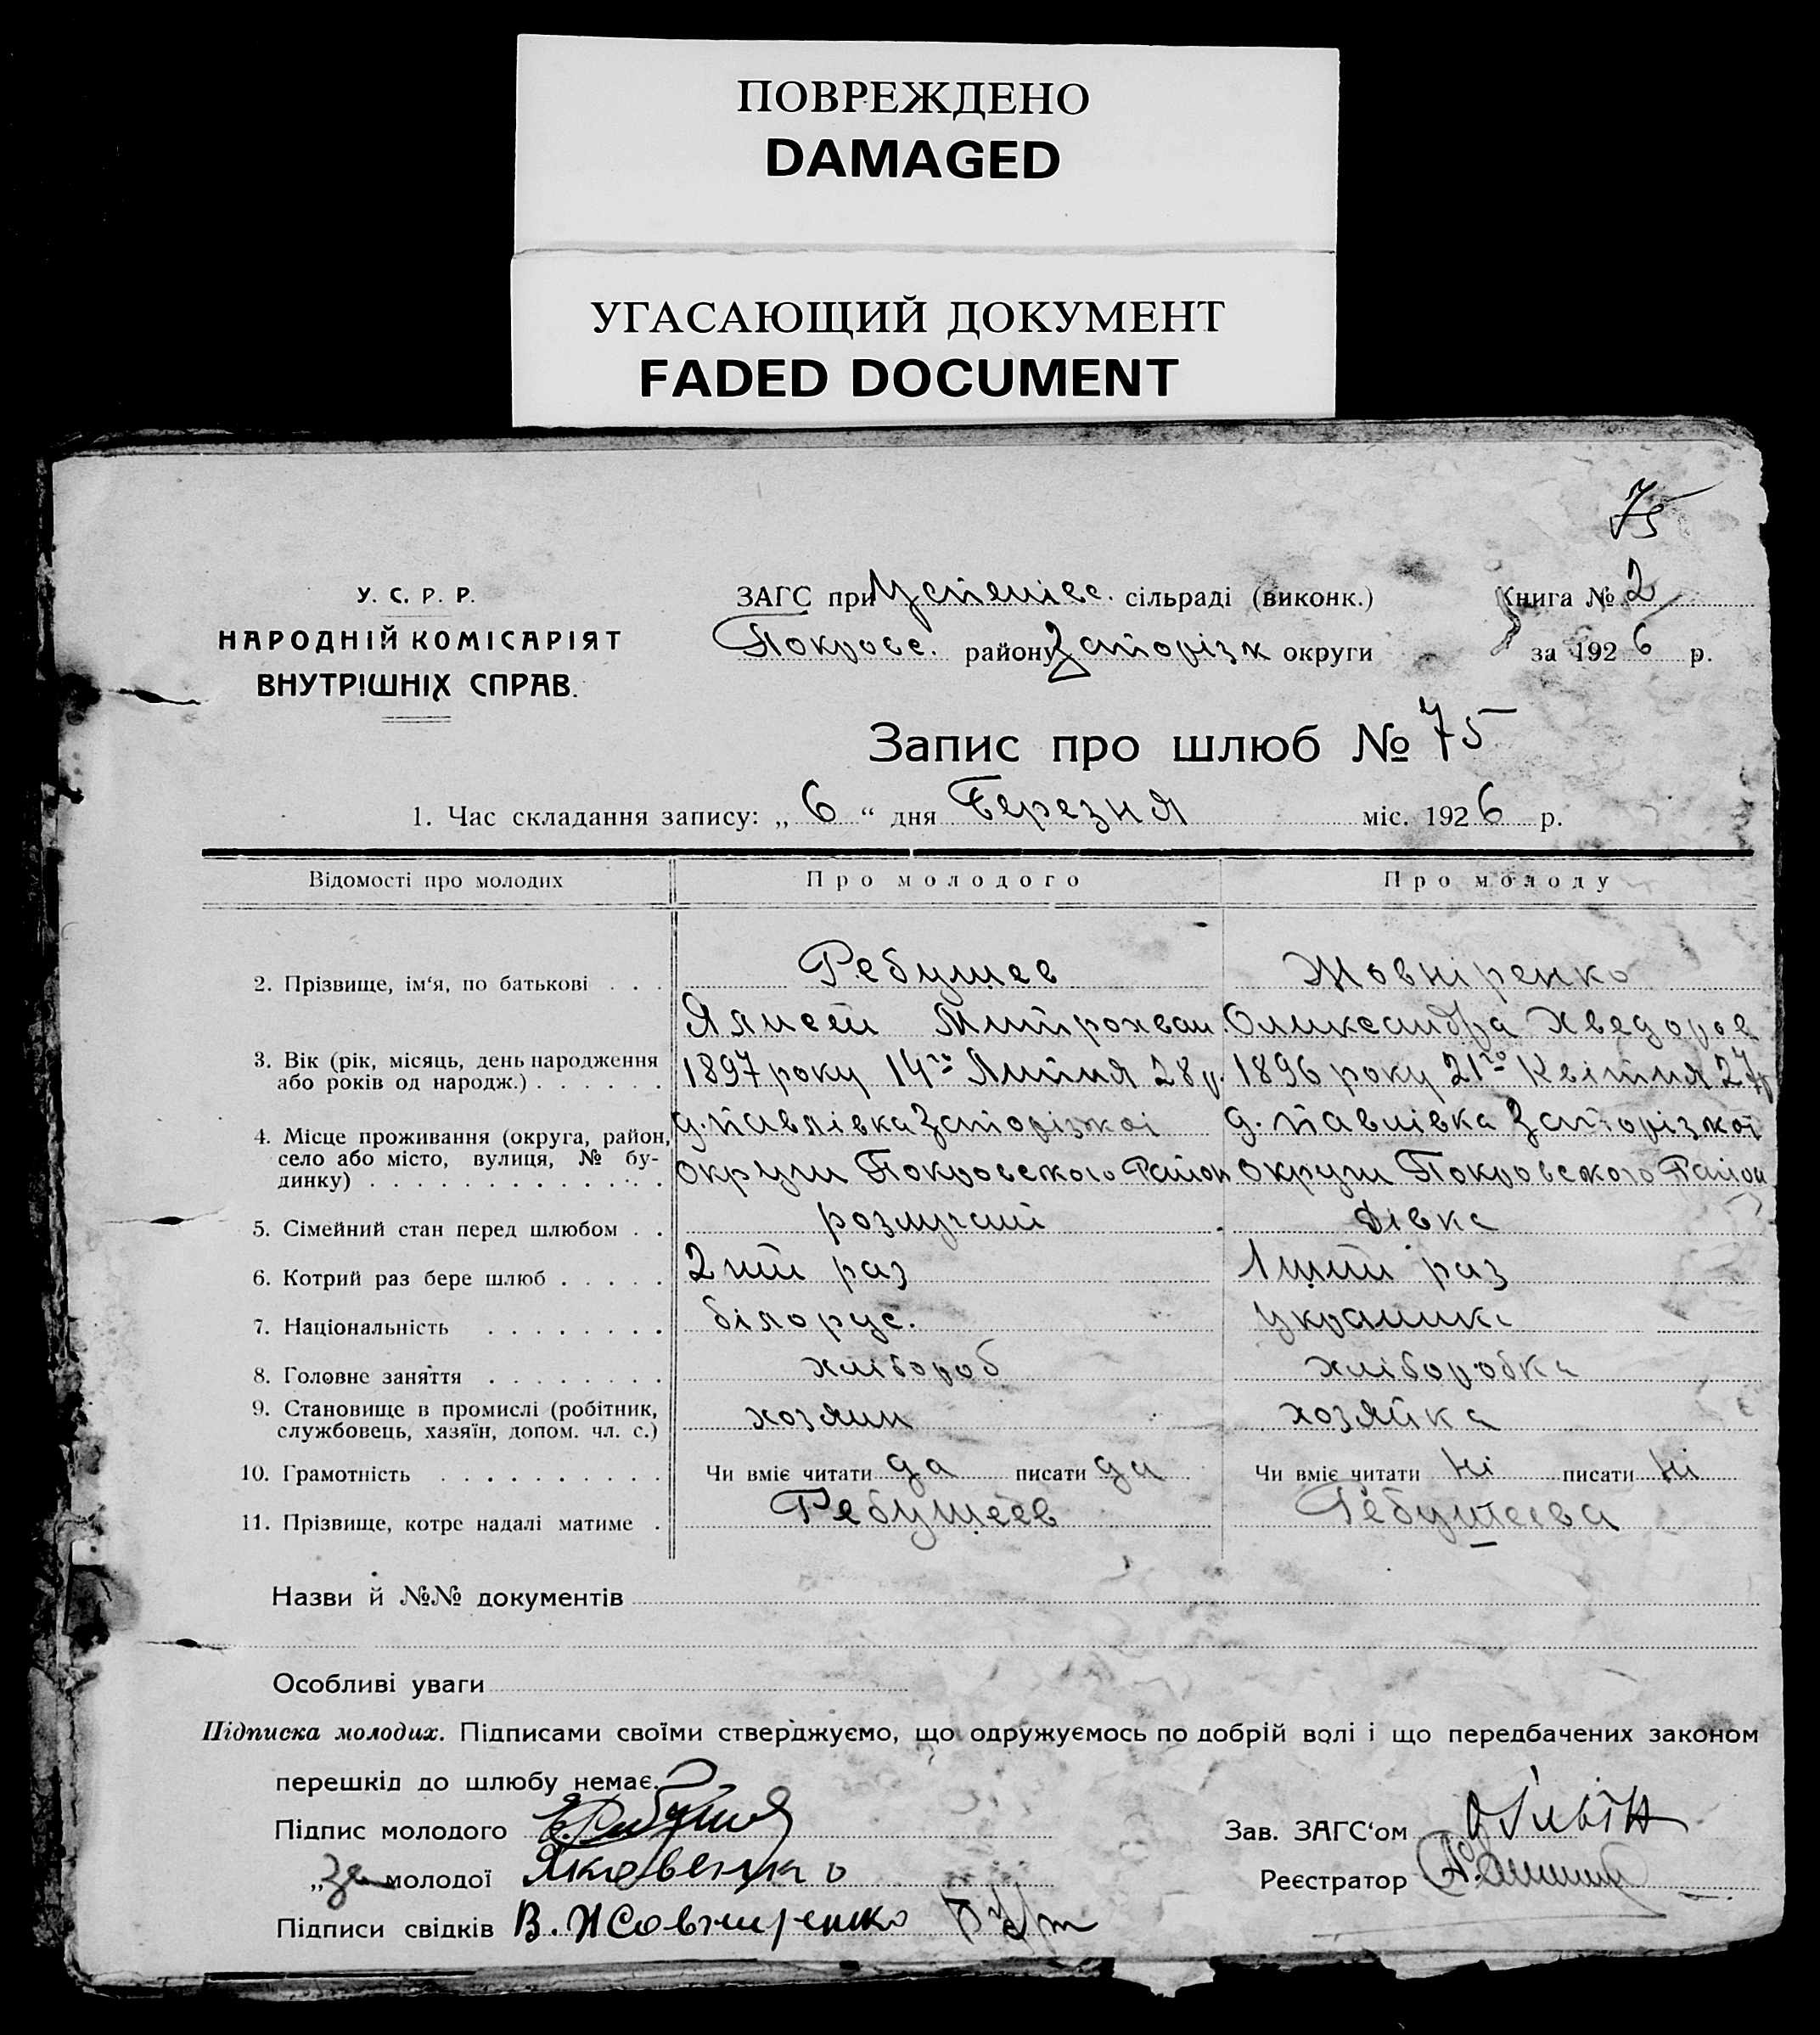 ПОВРЕЖДЕНО
DAMAGED
УГАСАЮЩИЙ ДОКУМЕНТ
FADED DOCUMENT
75
У. С. Р. Р.
НАРОДНІЙ КОМІСАРІЯТ
ВНУТРІШНІХ СПРАВ.
ЗАГС при Успенівс. сільраді (виконк.) Книга № 2
Покровс. району Запоріжк округи за 1926 р.
Запис про шлюб № 75
1. Час складання запису: „ 6 “ дня Березня міс. 1926 р.
Відомості про молодих Про молодого Про молоду
2. Прізвище, ім‘я, по батькові . . . Ребушев Жовніренко
Ялисей Митрохван. Олександра Хведоров
3. Вік (рік, місяць, день народження або років од народж.) . . . . . . 1897 року 14го Липня 28 р. 1896 року 21го Квітня 27 р
4. Місце проживання (округа, район, село або місто, вулиця, № будинку) . . . . . . . . . . . . . . д. Павлівка Запоріжкої д. Павлівка Запоріжкої
округи Покровского Район округи Покровского Район
5. Сімейний стан перед шлюбом . . розлучений дівка
6. Котрий раз бере шлюб . . . . . 2 ий раз 1 ший раз
7. Національність . . . . . . . . білорус. українка
8. Головне заняття . . . . . . . . хлібороб хліборобка
9. Становище в промислі (робітник, службовець, хазяїн, допом. чл. с.) хозяин хозяйка
10. Грамотність . . . . . . . . . . Чи вміє читати да писати да Чи вміє читати ні писати ні
11. Прізвище, котре надалі матиме . Ребушеев Ребушеева
Назви й №№ документів
Особливі уваги
Підписка молодих. Підписами своїми стверджуємо, що одружуємось по добрій волі і що передбачених законом
перешкід до шлюбу немає.
Підпис молодого Зав. ЗАГС‘ом
„ за молодої Яковенко Реєстратор
Підписи свідків В. Жовниренко